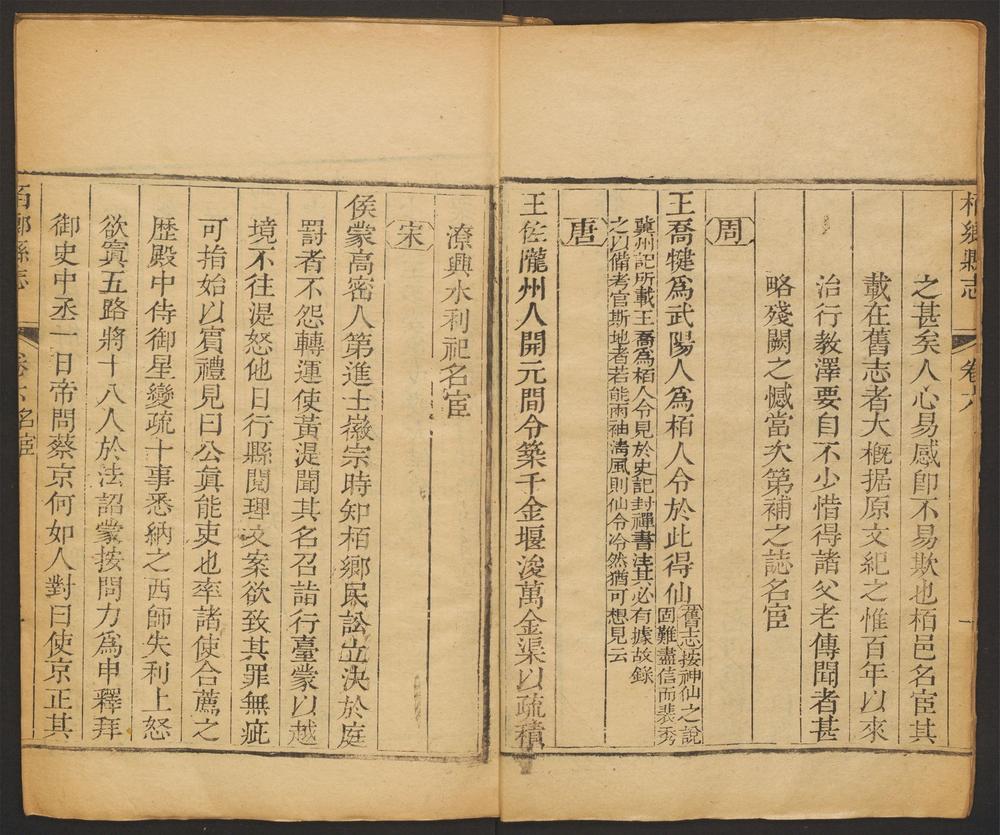 柏鄉縣志
卷六
一
之甚矣人心易感卽不易欺也栢邑名宦其
載在舊志者大槪据原文紀之惟百年以來
治行教澤要自不少惜得諸父老傳聞者甚
略殘闕之憾當次第補之誌名宦
周
王喬犍爲武陽人爲栢人令於此得仙舊志按神仙之說
固難盡信而裴秀
冀州記所載王喬爲栢人令見於史記封禪書注其必有據故錄
之以備考官斯地者若能兩袖淸風則仙令冷然猶可想見云
唐
王佐隴州人開元間令築千金堰浚萬金渠以疏積
潦興水利祀名宦
宋
侯蒙高密人第進士徽宗時知栢鄉民訟立決於庭
罰者不怨轉運使黃湜聞其名召詣行臺蒙以越
境不往湜怒他日行縣閱理文案欲致其罪無疵
可指始以賓禮見曰公眞能吏也率諸使合薦之
歷殿中侍御星變疏十事悉納之西師失利上怒
欲寘五路將十八人於法詔蒙按問力爲申釋拜
御史中丞一日帝問蔡京何如人對曰使京正其
百鄉縣志
卷六名宦